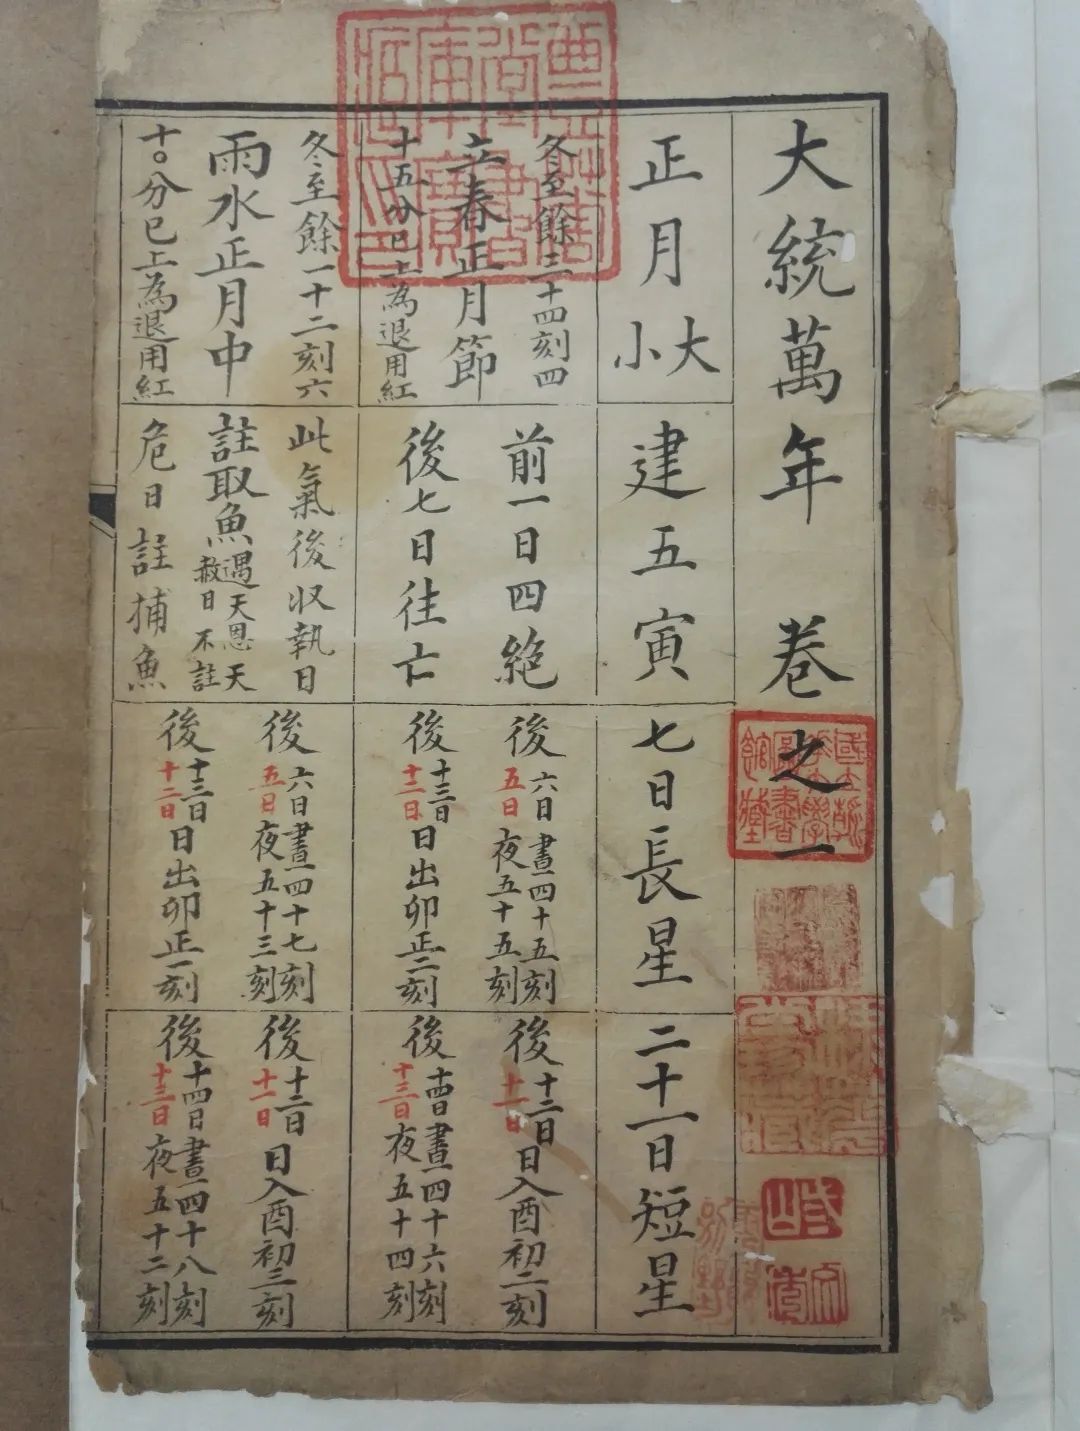 大統萬年 卷之一
正月大小
建五寅
七日長星
二十一日短星
冬至餘三十四刻四
立春正月節
十五分已上為退用紅
前一日四絕
後七日往亡
後六日五日晝四十五刻夜五十五刻
後十三日十二日日出卯正二刻
後十二日十一日日入酉初二刻
後十四日十三日晝四十六刻夜五十四刻
冬至餘一十二刻六
雨水正月中
十〇分已上為退用紅
此氣後收執日
註取魚遇天恩天赦日不註
危日註捕魚
後六日五日晝四十七刻夜五十三刻
後十三日十二日日出卯正一刻
後十二日十一日日入酉初三刻
後十四日十三日晝四十八刻夜五十二刻